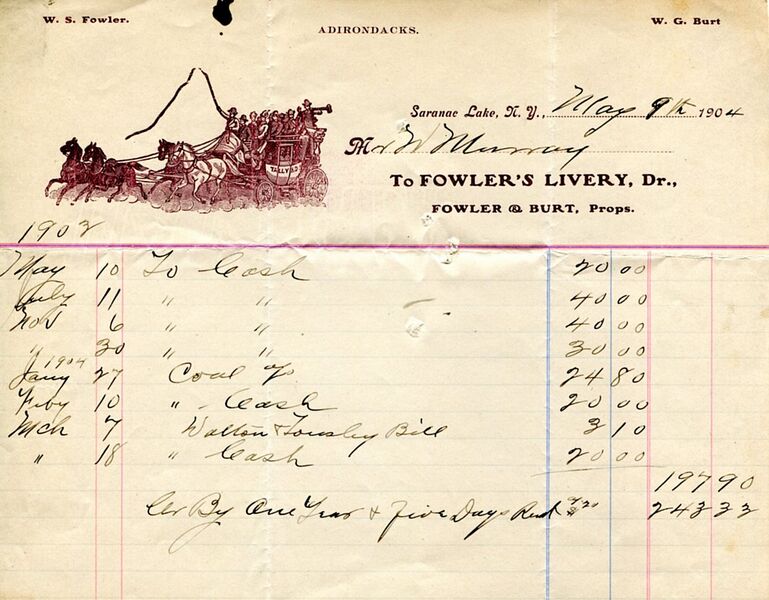 W. S. Fowler.
W. G. Burt
ADIRONDACKS.
Saranac Lake, N. Y., May 9th 1904
Mr W Murray
TALLY HO
To FOWLER'S LIVERY, Dr.,
FOWLER & BURT, Props.
1902
May 10 To Cash 20 00
July 11 " " 40 00
Nov 6 " " 40 00
" 30 " " 30 00
1904
Jany 27 Coal 24 80
Feby 10 " Cash 20 00
Mch 7 Walton & Tousley Bill 3 10
" 18 " Cash 20 00
197 90
Cr By One Year & Five Days Rent 243 33